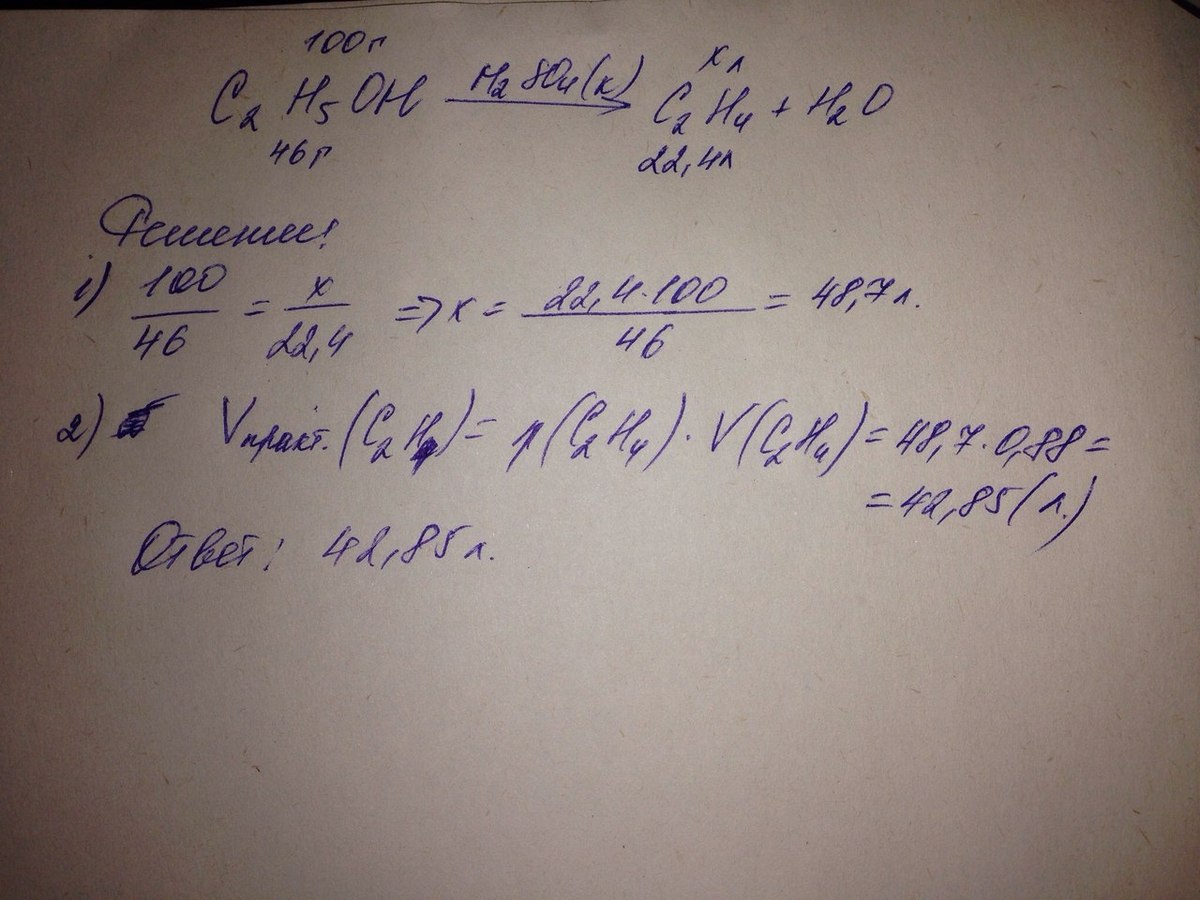 100г
x л
C₂H₅OH —H₂SO₄(к)→ C₂H₄ + H₂O
46г 22,4л
Решение:
1) 100/46 = x/22,4 => x = 22,4·100/46 = 48,7 л.
2) Vпракт.(C₂H₄) = η(C₂H₄)·V(C₂H₄) = 48,7·0,88 =
= 42,85 (л.)
Ответ: 42,85 л.